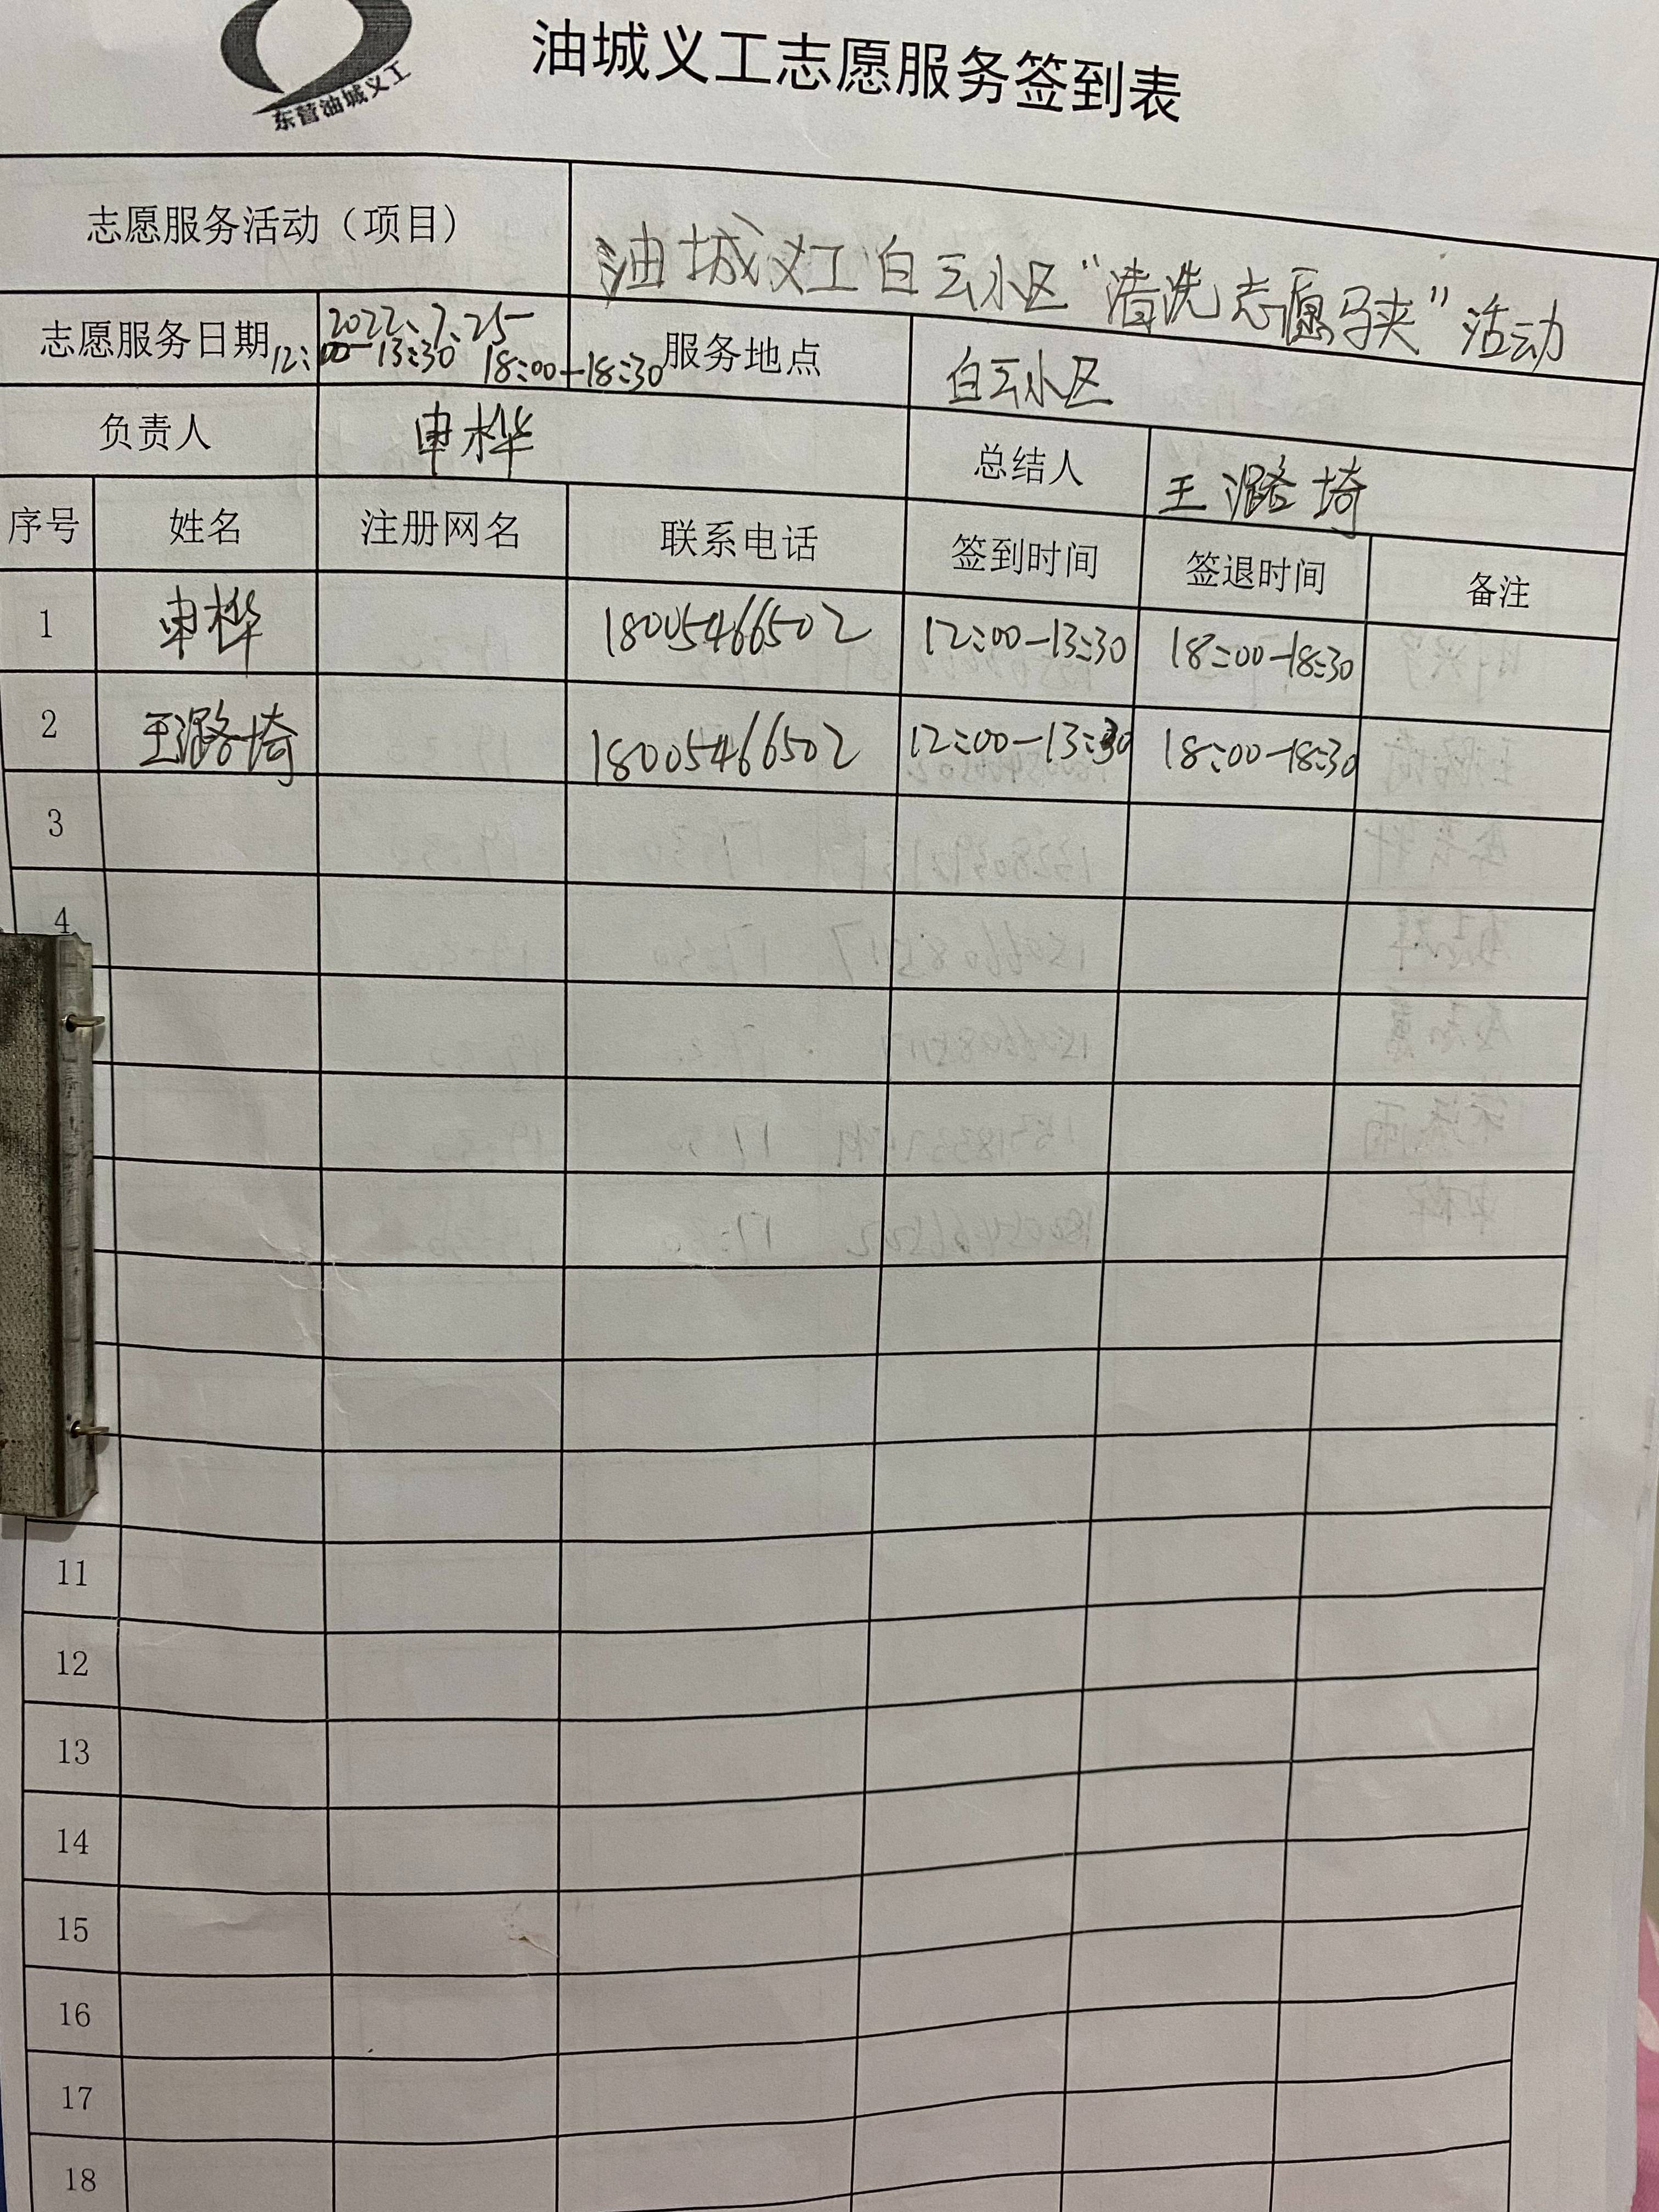 东营油城义工
油城义工志愿服务签到表
志愿服务活动（项目） 油城义工白云小区“清洗志愿马夹”活动
志愿服务日期 2022、7、25 12:00-13:30 18:00-18:30 服务地点 白云小区
负责人 申桦 总结人 王潞埼
序号 姓名 注册网名 联系电话 签到时间 签退时间 备注
1 申桦 18005466502 12:00-13:30 18:00-18:30
2 王潞埼 18005466502 12:00-13:30 18:00-18:30
3
4
11
12
13
14
15
16
17
18